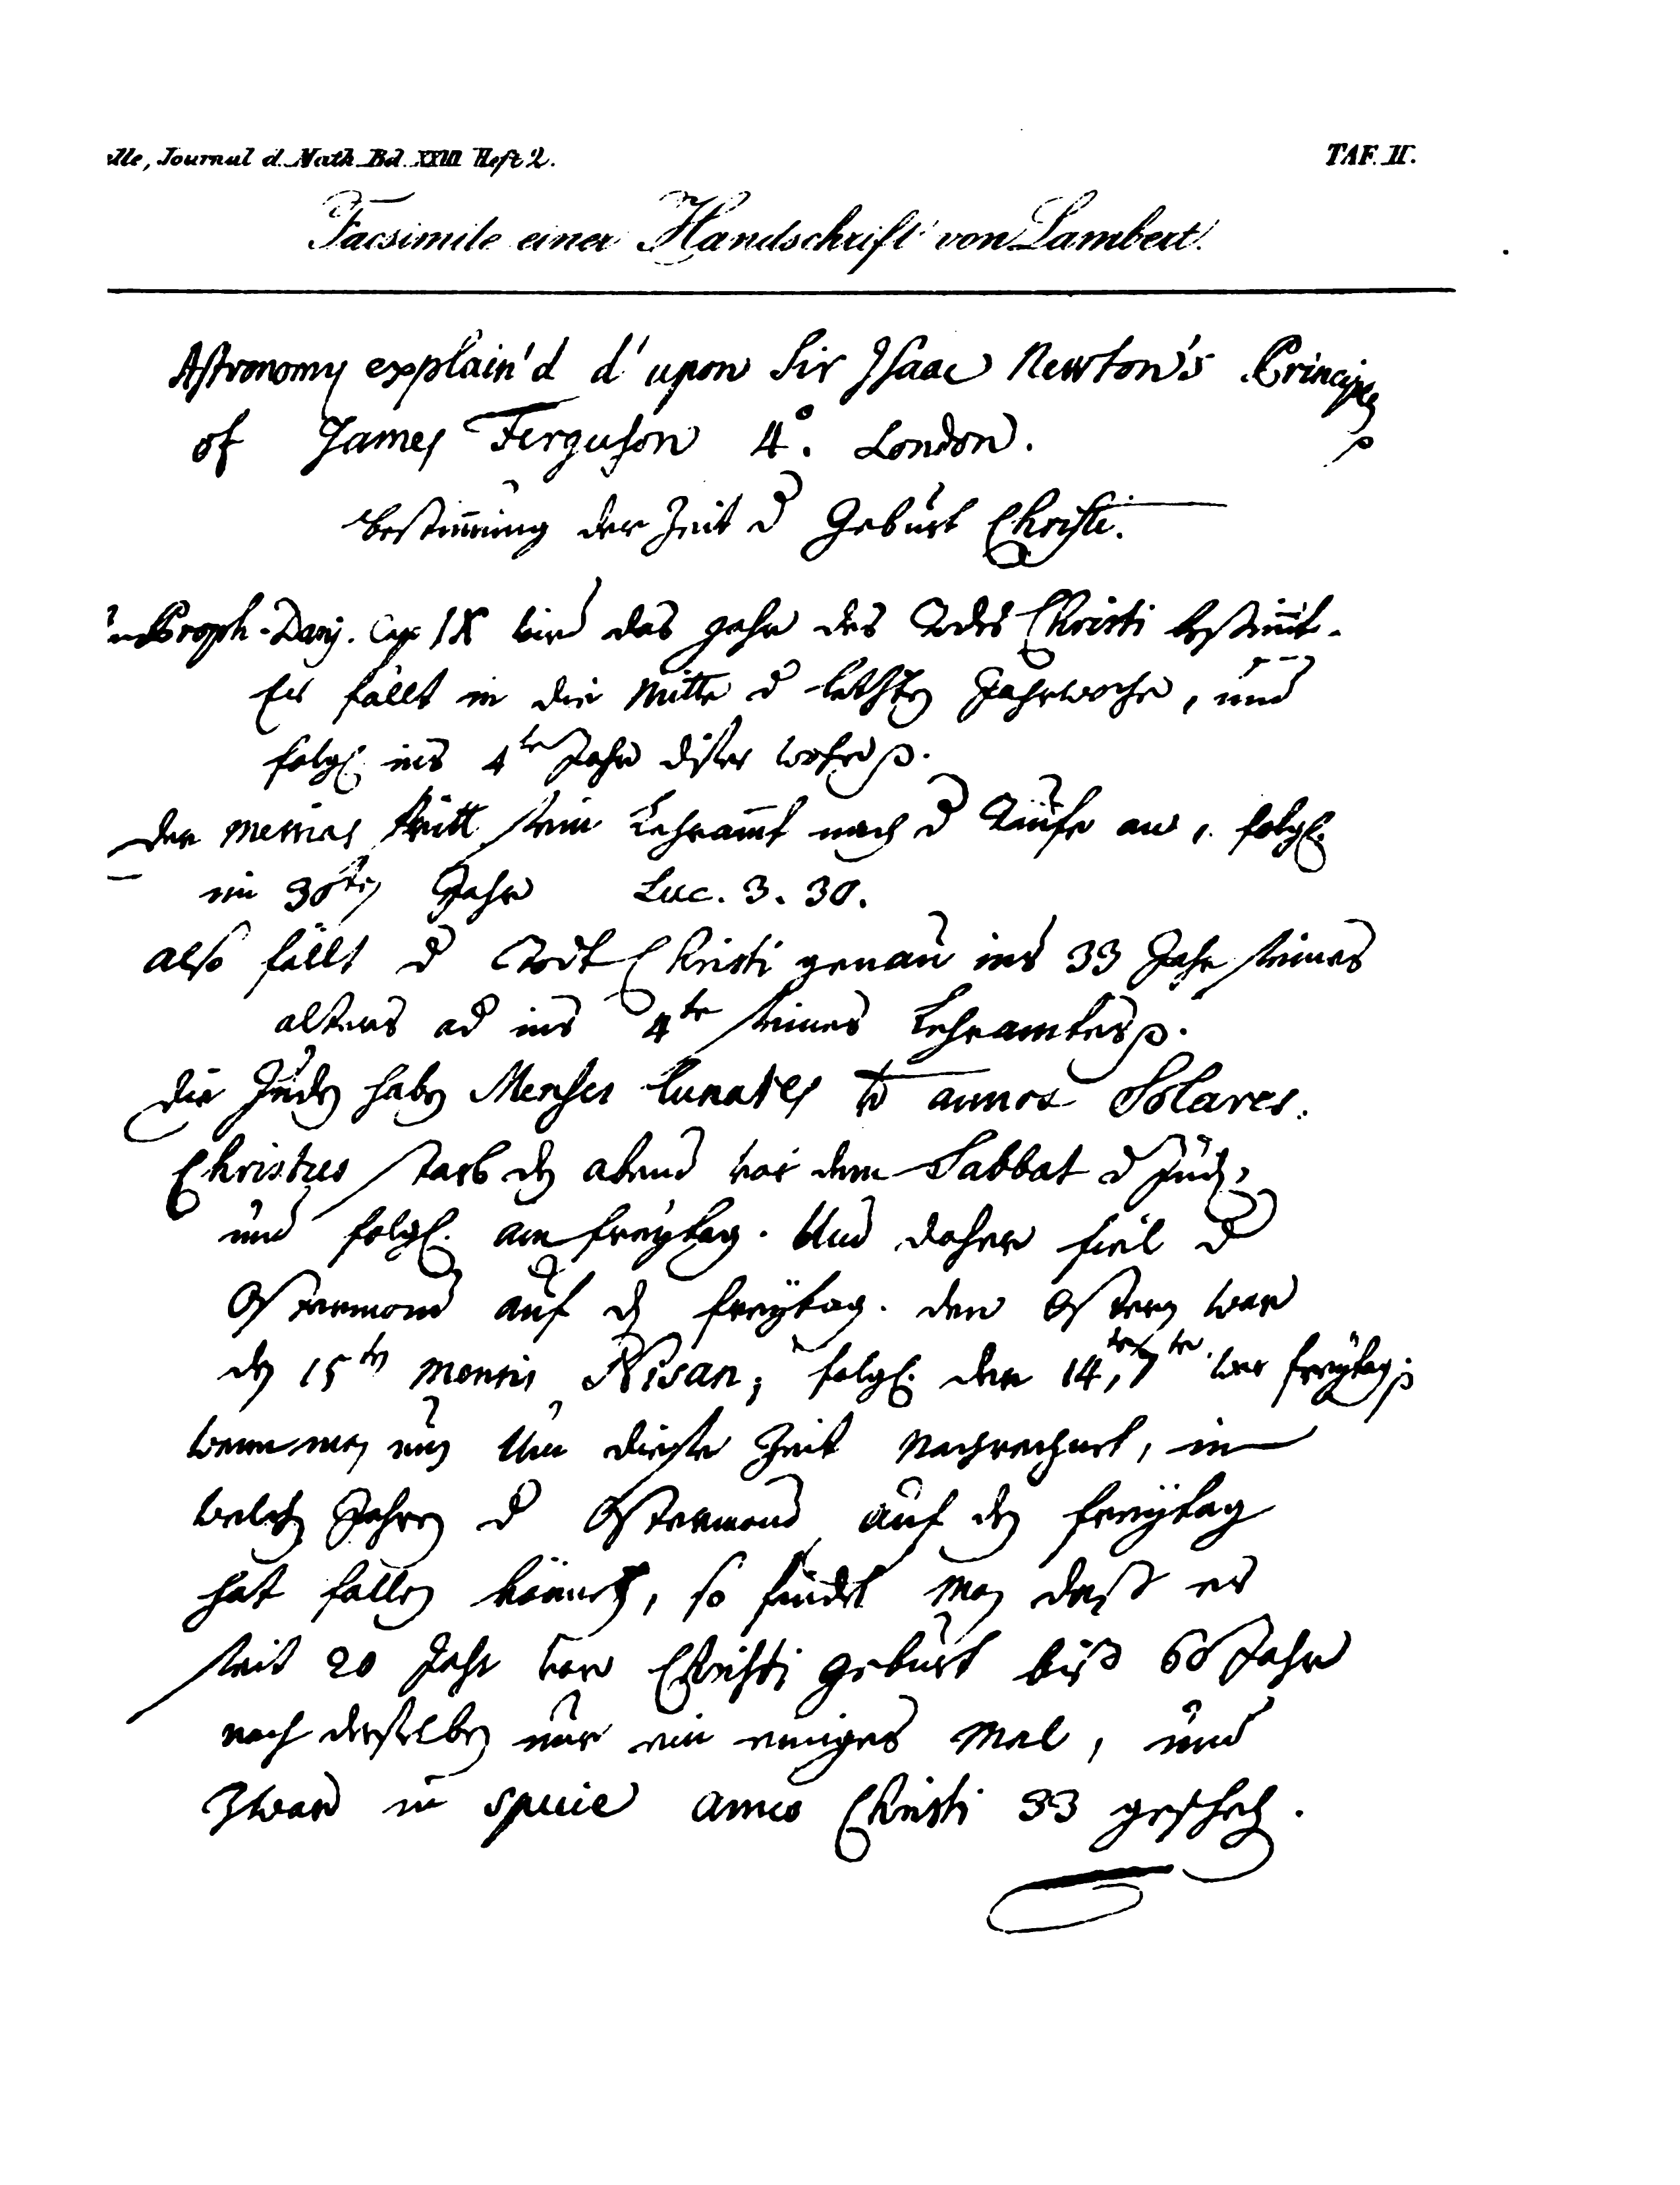 lle, Journal d. Math. Bd. XXIII Heft 2.
TAF. II.
Facsimile einer Handschrift von Lambert.
Astronomy explain'd d' upon Sir Isaac Newton's Principles
of James Ferguson 4°. London.
Bestimmung der Zeit d Geburt Christi.
Proph. Danj. Cap IX wird das Jahr des Todes Christi bestimmt.
Er fällt in die Mitte d letzten Jahrwoche, und
folgl. ins 4te Jahr dieser Woche
Der Messias tritt sein Lehramt nach d Taufe an, folgl.
im 30ten Jahr Luc. 3. 30.
also fällt d Todt Christi genau ins 33 Jahr seines
alters od ins 4te seines Lehramtes
die Juden haben Menses lunares annos Solares.
Christus starb den abend vor dem Sabbat d Juden,
und folgl. am freytag. Und daher fiel d
Ostermond auf den freÿtag. den Ostern war
den 15ten mensis Nisan; folgl. der 14te war freÿtag
wenn man nun um dieße Zeit nachrechnet, in
welchen Jahren d Ostermond auf den freÿtag
hat fallen können, so findet man daß er
seit 20 Jahr vor Christi geburt biß 60 Jahr
nach derselben nur ein einiges Mal, und
Zwar in specie anno Christi 33 geschehen.